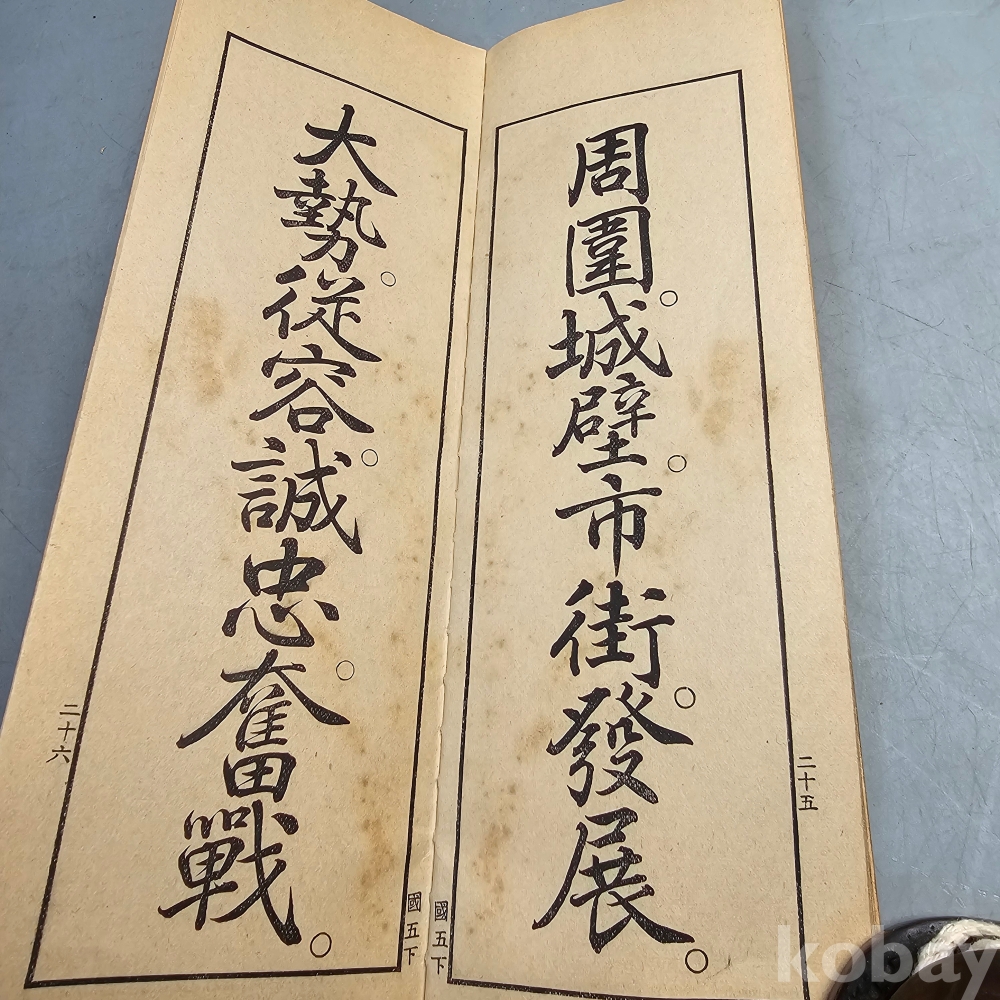 周圍。城壁。市街。發展。
二十五
國五下
大勢。從容。誠忠。奮戰。
二十六
國五下
kobay